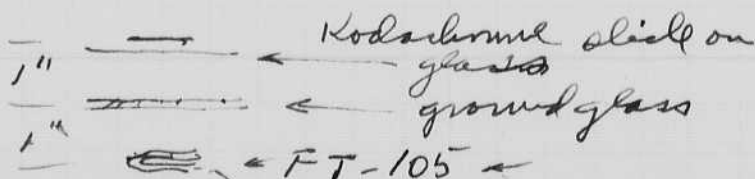 Kodachrome slide on
1" glass
ground glass
1" FT-105